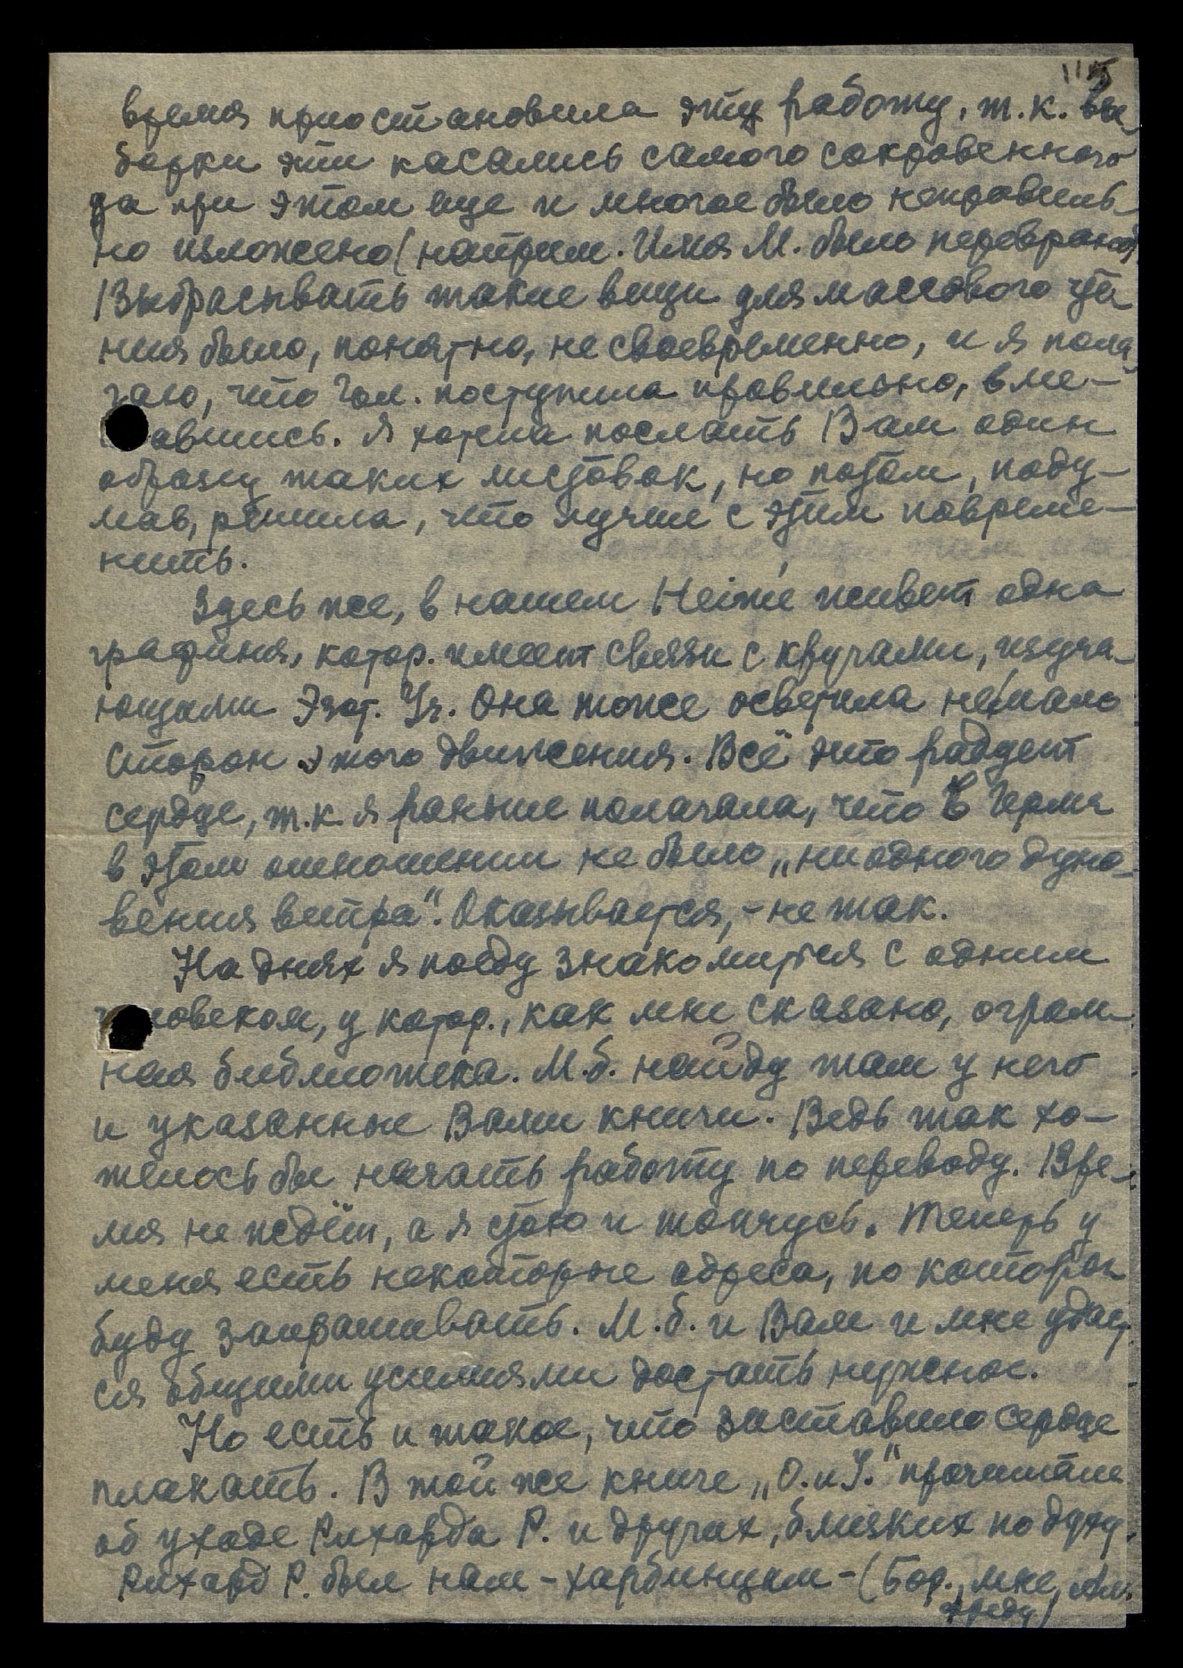 115
время приостановила эту работу, т.к. вы-
борки эти касались самого сокровенного
да при этом еще и многое было неправиль-
но изложено (наприм. Имя М. было переврано).
Выбрасывать такие вещи для массового чте
ния было, понятно, не своевременно, и я пола
гаю, что Гал. поступила правильно, вме-
авшись. Я хотела послать Вам один
образец таких листовок, но потом, поду-
мав, решила, что лучше с этим повреме-
нить.
Здесь же, в нашем Heim'е живет одна
графиня, котор. имеет связи с кругами, изуча-
ющими Эзот. Уч. Она тоже осветила немало
сторон этого движения. Всё это радует
сердце, т.к я раньше полагала, что в Герм.
в этом отношении не было „ни одного дуно-
вения ветра". Оказывается, - не так.
На днях я поеду знакомиться с одним
человеком, у котор., как мне сказано, огром-
ная библиотека. М.б. найду там у него
и указанные Вами книги. Ведь так хо-
телось бы начать работу по переводу. Вре-
мя не ждёт, а я стою и топчусь. Теперь у
меня есть некоторые адреса, по которым
буду запрашивать. М.б. и Вам и мне удаст
ся общими усилиями достать нужное.
Но есть и такое, что заставило сердце
плакать. В той же книге „О.и У." прочитала
об уходе Рихарда Р. и других, близких по духу.
Рихард Р. был нам - харбинцам - (Бор., мне, Аль
фреду)